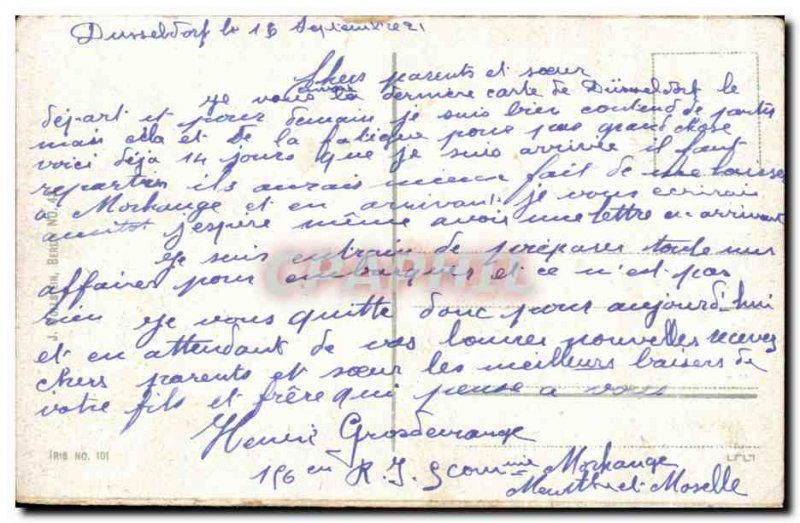 Dusseldorf le 15 Septembre 21
Chers parents et sœur
je vous envoie la dernière carte de Düsseldorf le
départ et pour demain je suis bien contend de partir
mais cela et de la fatigue pour pas grand chose
voici déjà 14 jours que je suis arrivée il faut
repartir ils aurais mieux fait de me laisser
a Morhange et en arrivant je vous écrirais
auntot j'espère même avoir une lettre en arrivant
je suis entrain de préparer toute mes
affaires pour embarquer et ce n'est pas
rien je vous quitte donc pour aujourd'hui
et en attendant de vos bonnes nouvelles recevez
chers parents et sœur les meilleurs baisers de
votre fils et frère qui pense a vous
Henri
156 em R.I. 9 comnie Morhange
Meurthe et Moselle
CPAPHIL
J. WOLLSTEIN, BERLIN NO. 43
IRIS NO. 101